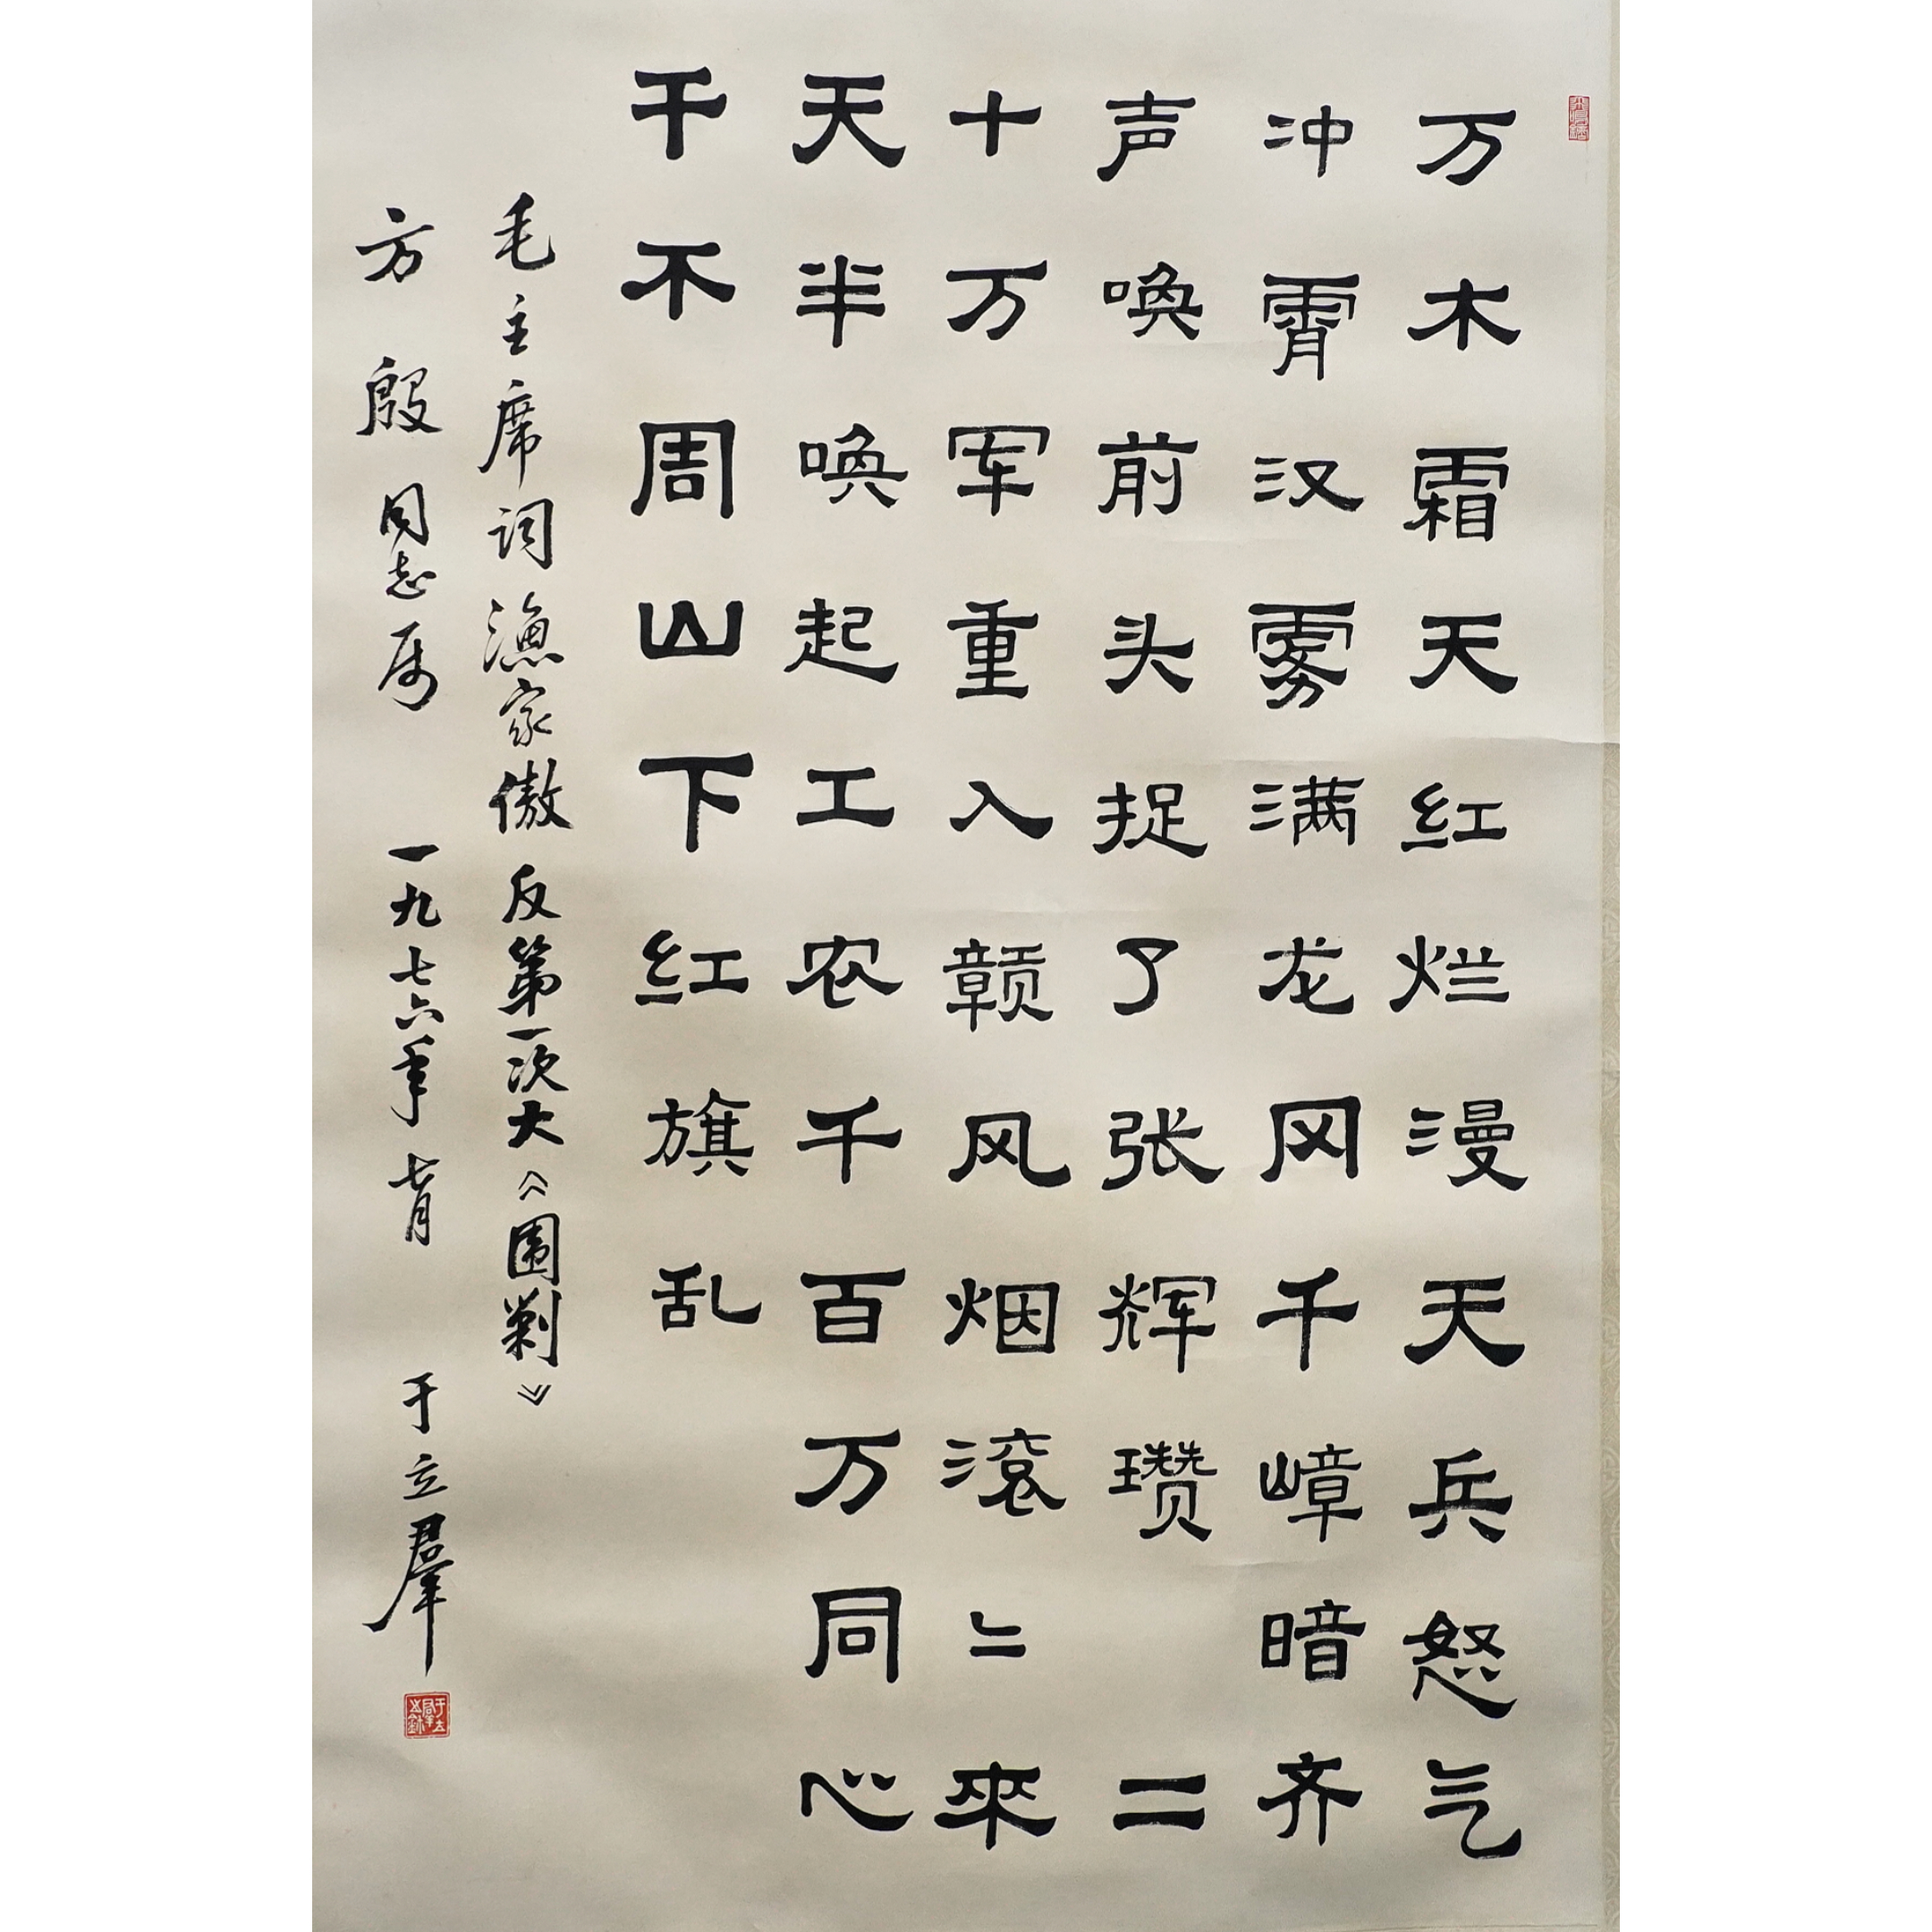 万木霜天红烂漫天兵怒气
冲霄汉雾满龙冈千嶂暗齐
声唤前头捉了张辉瓒二
十万军重入赣风烟滚〻来
天半唤起工农千百万同心
干不周山下红旗乱
毛主席词渔家傲反第一次大《围剿》
方殷同志属 一九七六年七月 于立群